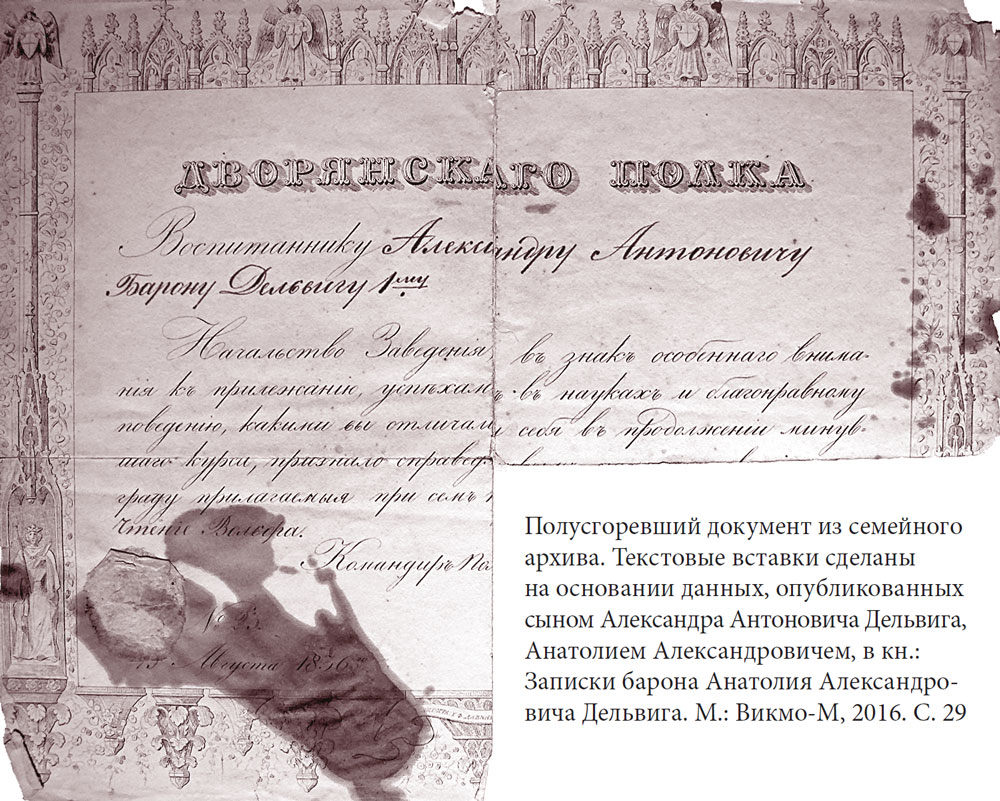 ДВОРЯНСКАГО ПОЛКА
Воспитаннику Александру Антоновичу
Барону Дельвигу 1му
Начальство Заведенія, въ знакъ особеннаго внима-
нія къ прилежанію, успѣхамъ въ наукахъ и благонравному
поведенію, какими вы отличали себя въ продолженіи минув-
шаго курса, признало справед
граду прилагаемыя при семъ
Чтенія Вольфа.
Командиръ Пол
№ 23.
Августа 1836
Полусгоревший документ из семейного
архива. Текстовые вставки сделаны
на основании данных, опубликованных
сыном Александра Антоновича Дельвига,
Анатолием Александровичем, в кн.:
Записки барона Анатолия Александро-
вича Дельвига. М.: Викмо-М, 2016. С. 29